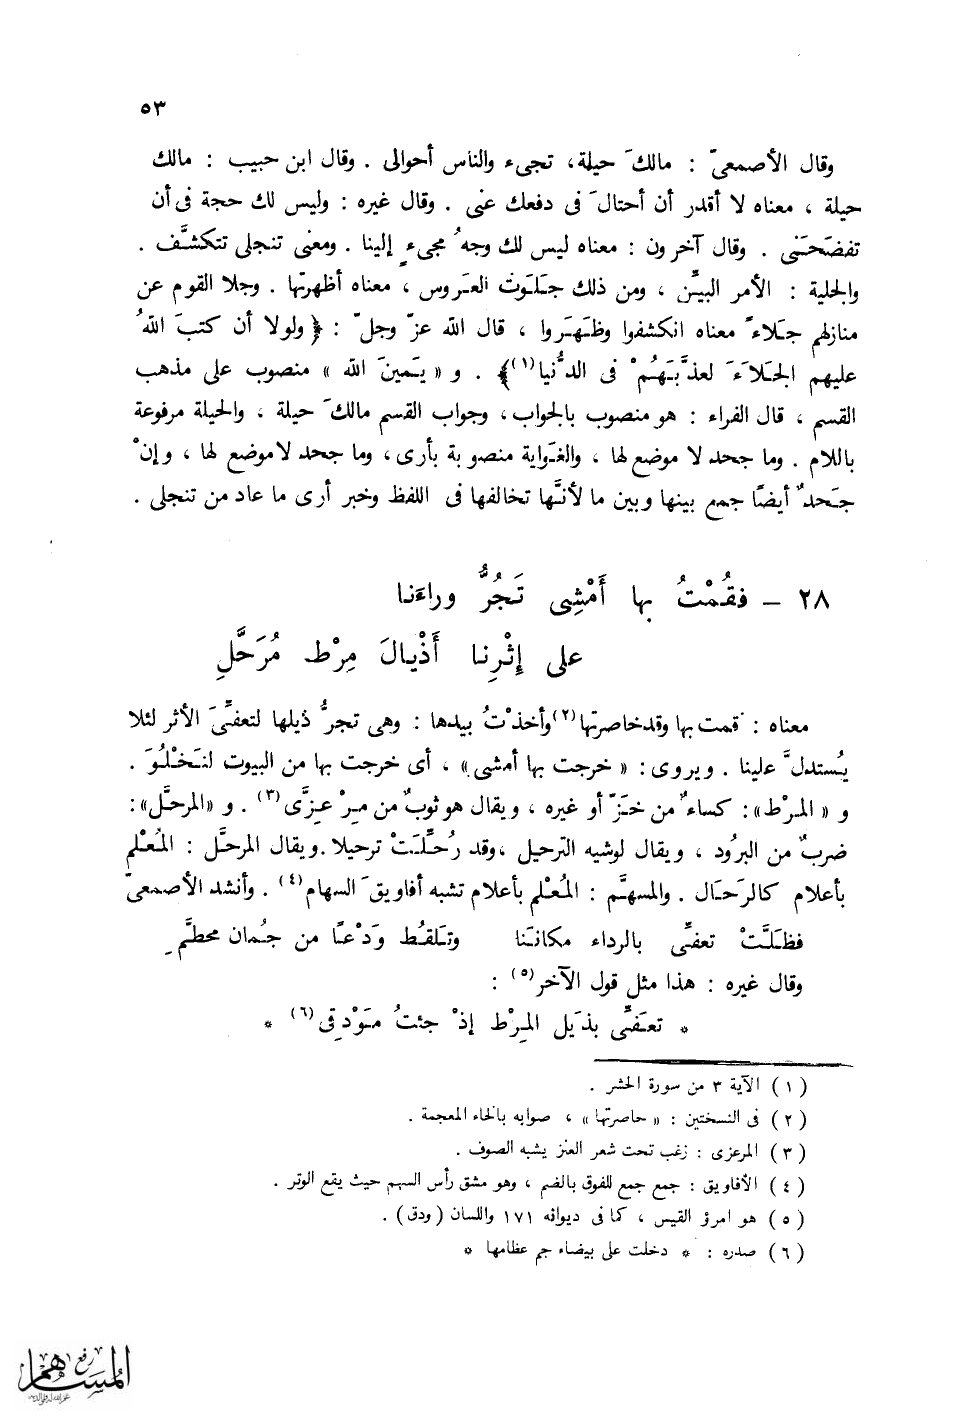 ٥٣
وقال الأصمعىّ : مالكَ حيلة، تجىء والناس أحوالى . وقال ابن حبيب : مالك
حيلة ، معناه لا أقدر أن أحتالَ فى دفعك عنى . وقال غيره : وليس لك حجة فى أن
تفضَحَنى . وقال آخرون : معناه ليس لك وجهُ مجىءٍ إلينا . ومعنى تنجلى تتكشَّف .
والجلية : الأمر البيِّن ، ومن ذلك جَلَوت العَروس ، معناه أظهرتها . وجلا القوم عن
منازلهم جَلاءً معناه انكشفوا وظَهَروا ، قال الله عزّ وجلّ : ﴿ ولولا أن كتبَ اللهُ
عليهم الجَلاَءَ لعذَّبَهُمْ فى الدُّنيا(١)﴾ . و « يَمينَ الله » منصوب على مذهب
القسم ، قال الفراء : هو منصوب بالجواب، وجواب القسم مالكَ حيلة ، والحيلة مرفوعة
باللام . وما جحد لا موضع لها ، والغَواية منصوبة بأرى، وما جحد لاموضع لها ، وإنْ
جَحدٌ أيضًا جمع بينها وبين ما لأنَّها تخالفها فى اللفظ وخبر أرى ما عاد من تنجلى .
٢٨ – فقُمْتُ بها أَمْشِى تَجُرُّ وراءَنا
على إِثْرِنا أَذْيالَ مِرْط مُرَحَّلِ
معناه : قمت بها وقدخاصرتها(٢)وأخذْتُ بيدها : وهى تجرُّ ذيلها لتعفِّىَ الأثر لئلا
يُستدلَّ علينا . ويروى : « خرجت بها أمشى » ، أى خرجت بها من البيوت لنَخْلُوَ .
و « المِرْط »: كساءٌ من خَزّ أو غيره ، ويقال هو ثوبٌ من مِرْعِزَّى(٣) . و «المرحَّل»:
ضربٌ من البرُود ، ويقال لوشيه الترحيل ،وقد رُحِّلَتْ ترحيلا .ويقال المرحَّل : المُعْلم
بأعلام كالرَحَال . والمسهَّم : المُعْلم بأعلام تشبه أفاويقَ السهام(٤) . وأنشد الأصمعىّ
فظَلَّتْ تعفِّى بالرداء مكانَنا وتَلقُط وَدْعًا من جُمان محطَّمِ
وقال غيره : هذا مثل قول الآخر(٥) :
* تعَفِّى بذَيل المِرْط إذْ جئتُ مَوْدِقى(٦) *
(١) الآية ٣ من سورة الحشر .
(٢) فى النسختين : « حاصرتها » ، صوابه بالخاء المعجمة .
(٣) المرعزى : زغب تحت شعر العنز يشبه الصوف .
(٤) الأفاويق : جمع جمع للفوق بالضم ، وهو مشق رأس السهم حيث يقع الوتر .
(٥) هو امرؤ القيس ، كما فى ديوانه ١٧١ واللسان (ودق) .
(٦) صدره : * دخلت على بيضاء جم عظامها *
رفع
المساهم